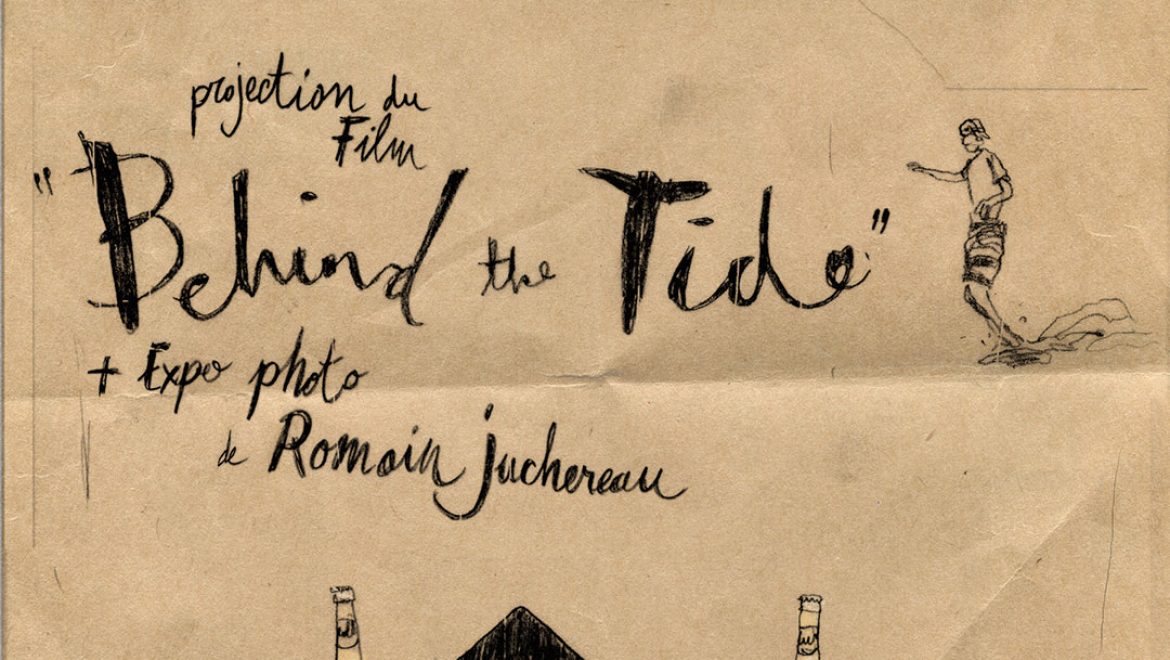 projection du
Film
"Behind the Tide"
+ Expo photo
de Romain juchereau